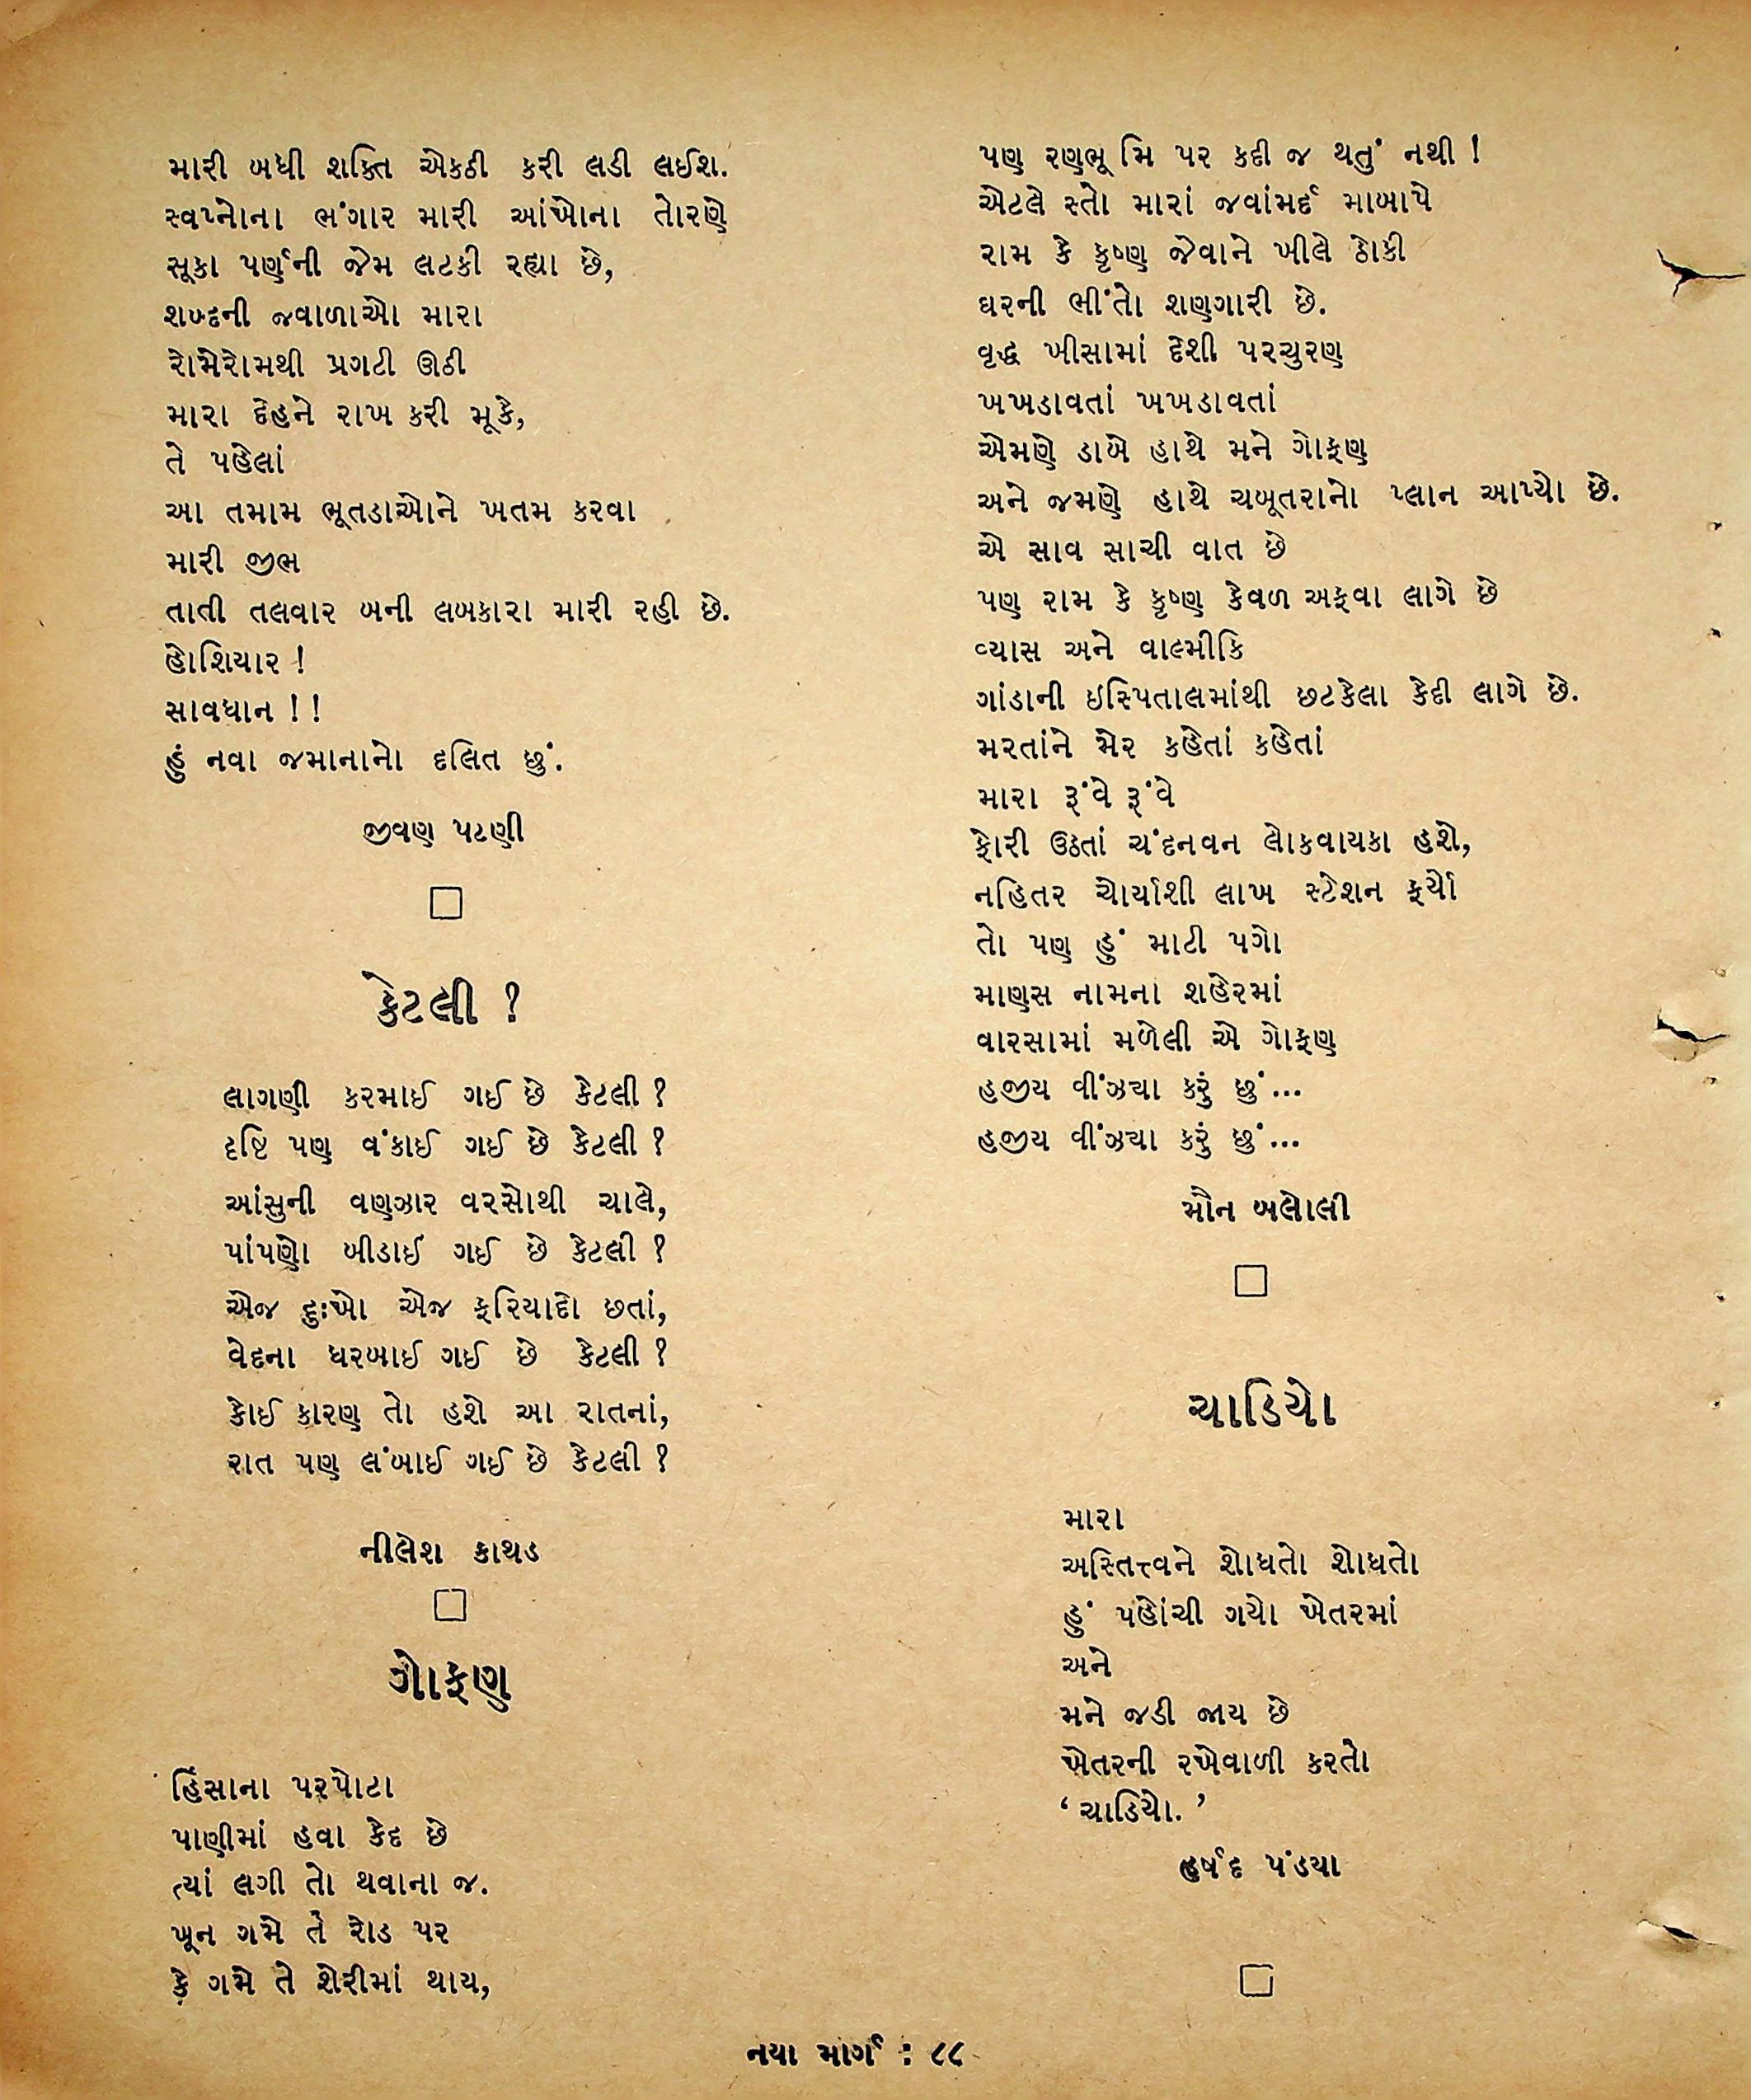 મારી બધી શક્તિ એકઠી કરી લડી લઈશ.
સ્વપ્નોના ભંગાર મારી આંખોના તોરણે
સૂકા પર્ણની જેમ લટકી રહ્યા છે,
શબ્દની જવાળાઓ મારા
રોમેરોમથી પ્રગટી ઊઠી
મારા દેહને રાખ કરી મૂકે,
તે પહેલાં
આ તમામ ભૂતડાઓને ખતમ કરવા
મારી જીભ
તાતી તલવાર બની લબકારા મારી રહી છે.
હોશિયાર !
સાવધાન ! !
હું નવા જમાનાનો દલિત છું.
જીવણ પટણી
કેટલી ?
લાગણી કરમાઈ ગઈ છે કેટલી ?
દૃષ્ટિ પણ વંકાઈ ગઈ છે કેટલી ?
આંસુની વણઝાર વરસોથી ચાલે,
પાંપણો બીડાઈ ગઈ છે કેટલી ?
એજ દુઃખો એજ ફરિયાદો છતાં,
વેદના ધરબાઈ ગઈ છે કેટલી ?
કોઈ કારણ તો હશે આ રાતનાં,
રાત પણ લંબાઈ ગઈ છે કેટલી ?
નીલેશ કાથડ
ગોફણ
હિંસાના પરપોટા
પાણીમાં હવા કેદ છે
ત્યાં લગી તો થવાના જ.
ખૂન ગમે તે રોડ પર
કે ગમે તે શેરીમાં થાય,
પણ રણભૂમિ પર કદી જ થતું નથી !
એટલે સ્તો મારાં જવાંમર્દ માબાપે
રામ કે કૃષ્ણ જેવાને ખીલે ઠોકી
ઘરની ભીંતો શણગારી છે.
વૃદ્ધ ખીસામાં દેશી પરચુરણ
ખખડાવતાં ખખડાવતાં
એમણે ડાબે હાથે મને ગોફણ
અને જમણે હાથે ચબૂતરાનો પ્લાન આપ્યો છે.
એ સાવ સાચી વાત છે
પણ રામ કે કૃષ્ણ કેવળ અફવા લાગે છે
વ્યાસ અને વાલ્મીકિ
ગાંડાની ઇસ્પિતાલમાંથી છટકેલા કેદી લાગે છે.
મરતાંને મેર કહેતાં કહેતાં
મારા રૂંવે રૂંવે
ફોરી ઉઠતાં ચંદનવન લોકવાયકા હશે,
નહિતર ચોર્યાશી લાખ સ્ટેશન ફર્યો
તો પણ હું માટી પગો
માણસ નામના શહેરમાં
વારસામાં મળેલી એ ગોફણ
હજીય વીંઝ્યા કરું છું...
હજીય વીંઝ્યા કરું છું...
મૌન બલોલી
ચાડિયો
મારા
અસ્તિત્ત્વને શોધતો શોધતો
હું પહોંચી ગયો ખેતરમાં
અને
મને જડી જાય છે
ખેતરની રખેવાળી કરતો
‘ચાડિયો. ’
હર્ષદ પંડયા
નયા માર્ગ : ૮૮